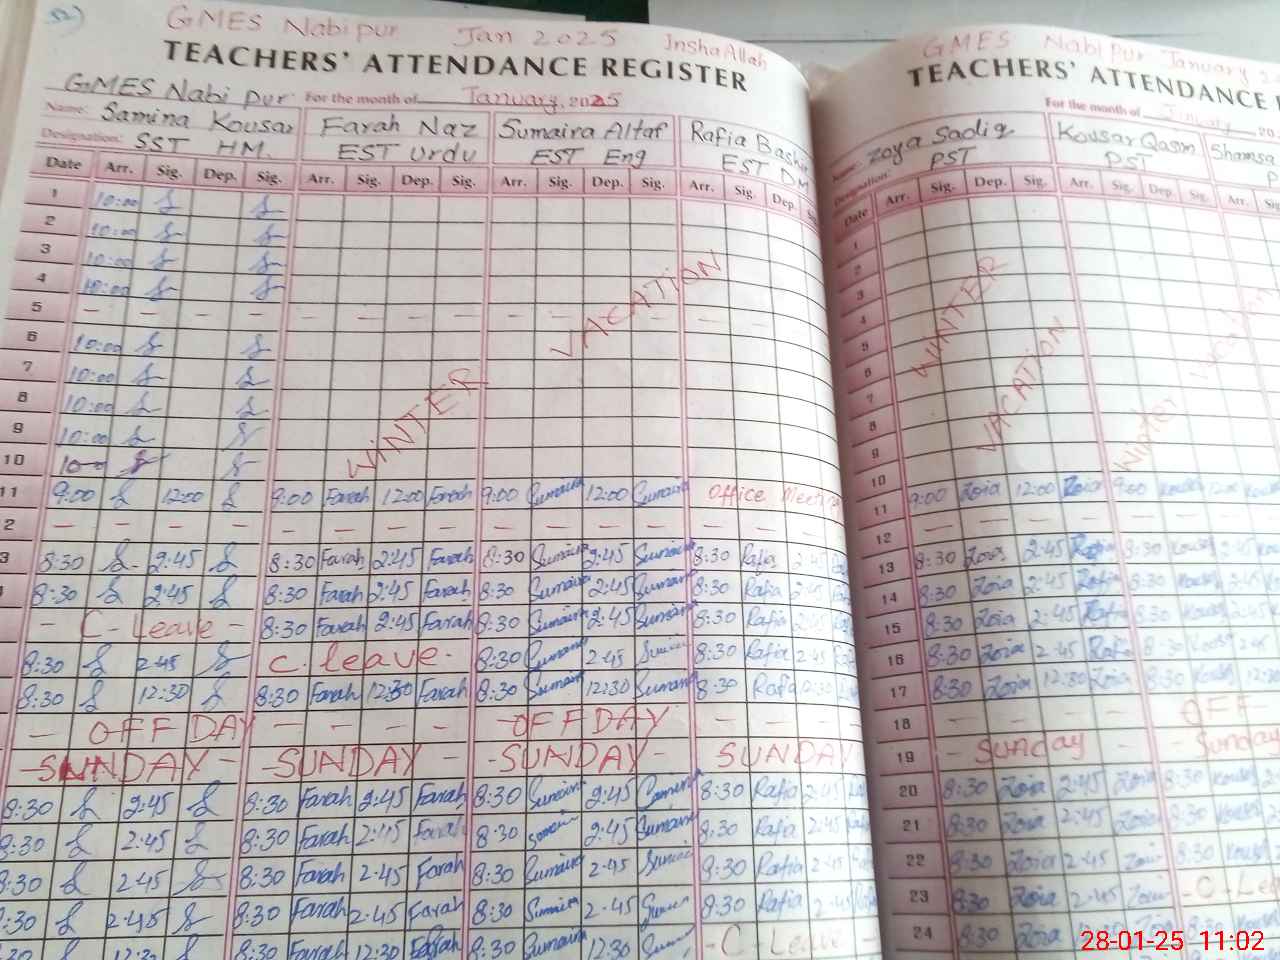 52)
GMES Nabipur Jan 2025 InshaAllah
TEACHERS' ATTENDANCE REGISTER
GMES Nabi pur For the month of January, 2025
Name: Samina Kousar Farah Naz Sumaira Altaf Rafia Bashir
Designation: SST HM. EST Urdu EST Eng EST DM
Date Arr. Sig. Dep. Sig. Arr. Sig. Dep. Sig. Arr. Sig. Dep. Sig. Arr. Sig. Dep.
1 10:00
2 10:00
3 10:00
4 10:00
5 - - - -
6 10:00
7 10:00
8 10:00
9 10:00
10 10:00
WINTER VACATION
11 9:00 12:00 9:00 Farah 12:00 Farah 9:00 Sumaira 12:00 Sumaira Office Meeting
2 - - - -
3 8:30 2:45 8:30 Farah 2:45 Farah 8:30 Sumaira 2:45 Sumaira 8:30 Rafia 2:45
8:30 2:45 8:30 Farah 2:45 Farah 8:30 Sumaira 2:45 Sumaira 8:30 Rafia 2:45
- C - Leave - 8:30 Farah 2:45 Farah 8:30 Sumaira 2:45 Sumaira 8:30 Rafia 2:45
8:30 2:45 C. leave. 8:30 Sumaira 2:45 8:30 Rafia 2:45
8:30 12:30 8:30 Farah 12:30 Farah 8:30 Sumaira 12:30 Sumaira 8:30 Rafia 12:30
- OFF DAY - - - - OFF DAY -
- SUNDAY - - SUNDAY - - SUNDAY - SUNDAY
8:30 2:45 8:30 Farah 2:45 Farah 8:30 Sumaira 2:45 8:30 Rafia 2:45
2:45 8:30 Farah 2:45 Farah 8:30 2:45 Sumaira 8:30 Rafia 2:45
8:30 2:45 8:30 Farah 2:45 Farah 8:30 Sumaira 2:45 8:30 Rafia 2:45
:30 2:45 8:30 Farah 2:45 Farah 8:30 Sumaira 2:45 8:30 Rafia 2:45
12:30 8:30 Farah 12:30 8:30 Sumaira 12:30 - C - Leave
GMES Nabipur January
TEACHERS' ATTENDANCE
For the month of January 20
Name: Zoya Sadiq Kousar Qasm Shamsa
Designation: PST PST P
Date Arr. Sig. Dep. Sig. Arr. Sig. Dep. Sig. Arr.
1
2
3
4
5
6
7
8
9
10
WINTER VACATION
Winter
11 9:00 Zoia 12:00 Zoia 9:00 Kousar 12:00
12 - - - -
13 8:30 Zoia 2:45 8:30 Kousar 2:45
14 8:30 Zoia 2:45 8:30 Kousar 2:45
15 8:30 Zoia 2:45 8:30 Kousar 2:45
16 8:30 Zoia 2:45 8:30 Kousar 2:45
17 8:30 Zoia 12:30 Zoia 8:30 Kousar 12:30
18 - - - - OFF
19 - Sunday - - Sunday
20 8:30 Zoia 2:45 Zoia 8:30 Kousar 2:45
21 8:30 Zoia 2:45 Zoia 8:30 Kousar 2:45
22 8:30 Zoia 2:45 Zoia 8:30 Kousar 2:45
23 8:30 Zoia 2:45 Zoia - C - Le
24 8:30 Zoia
28-01-25 11:02